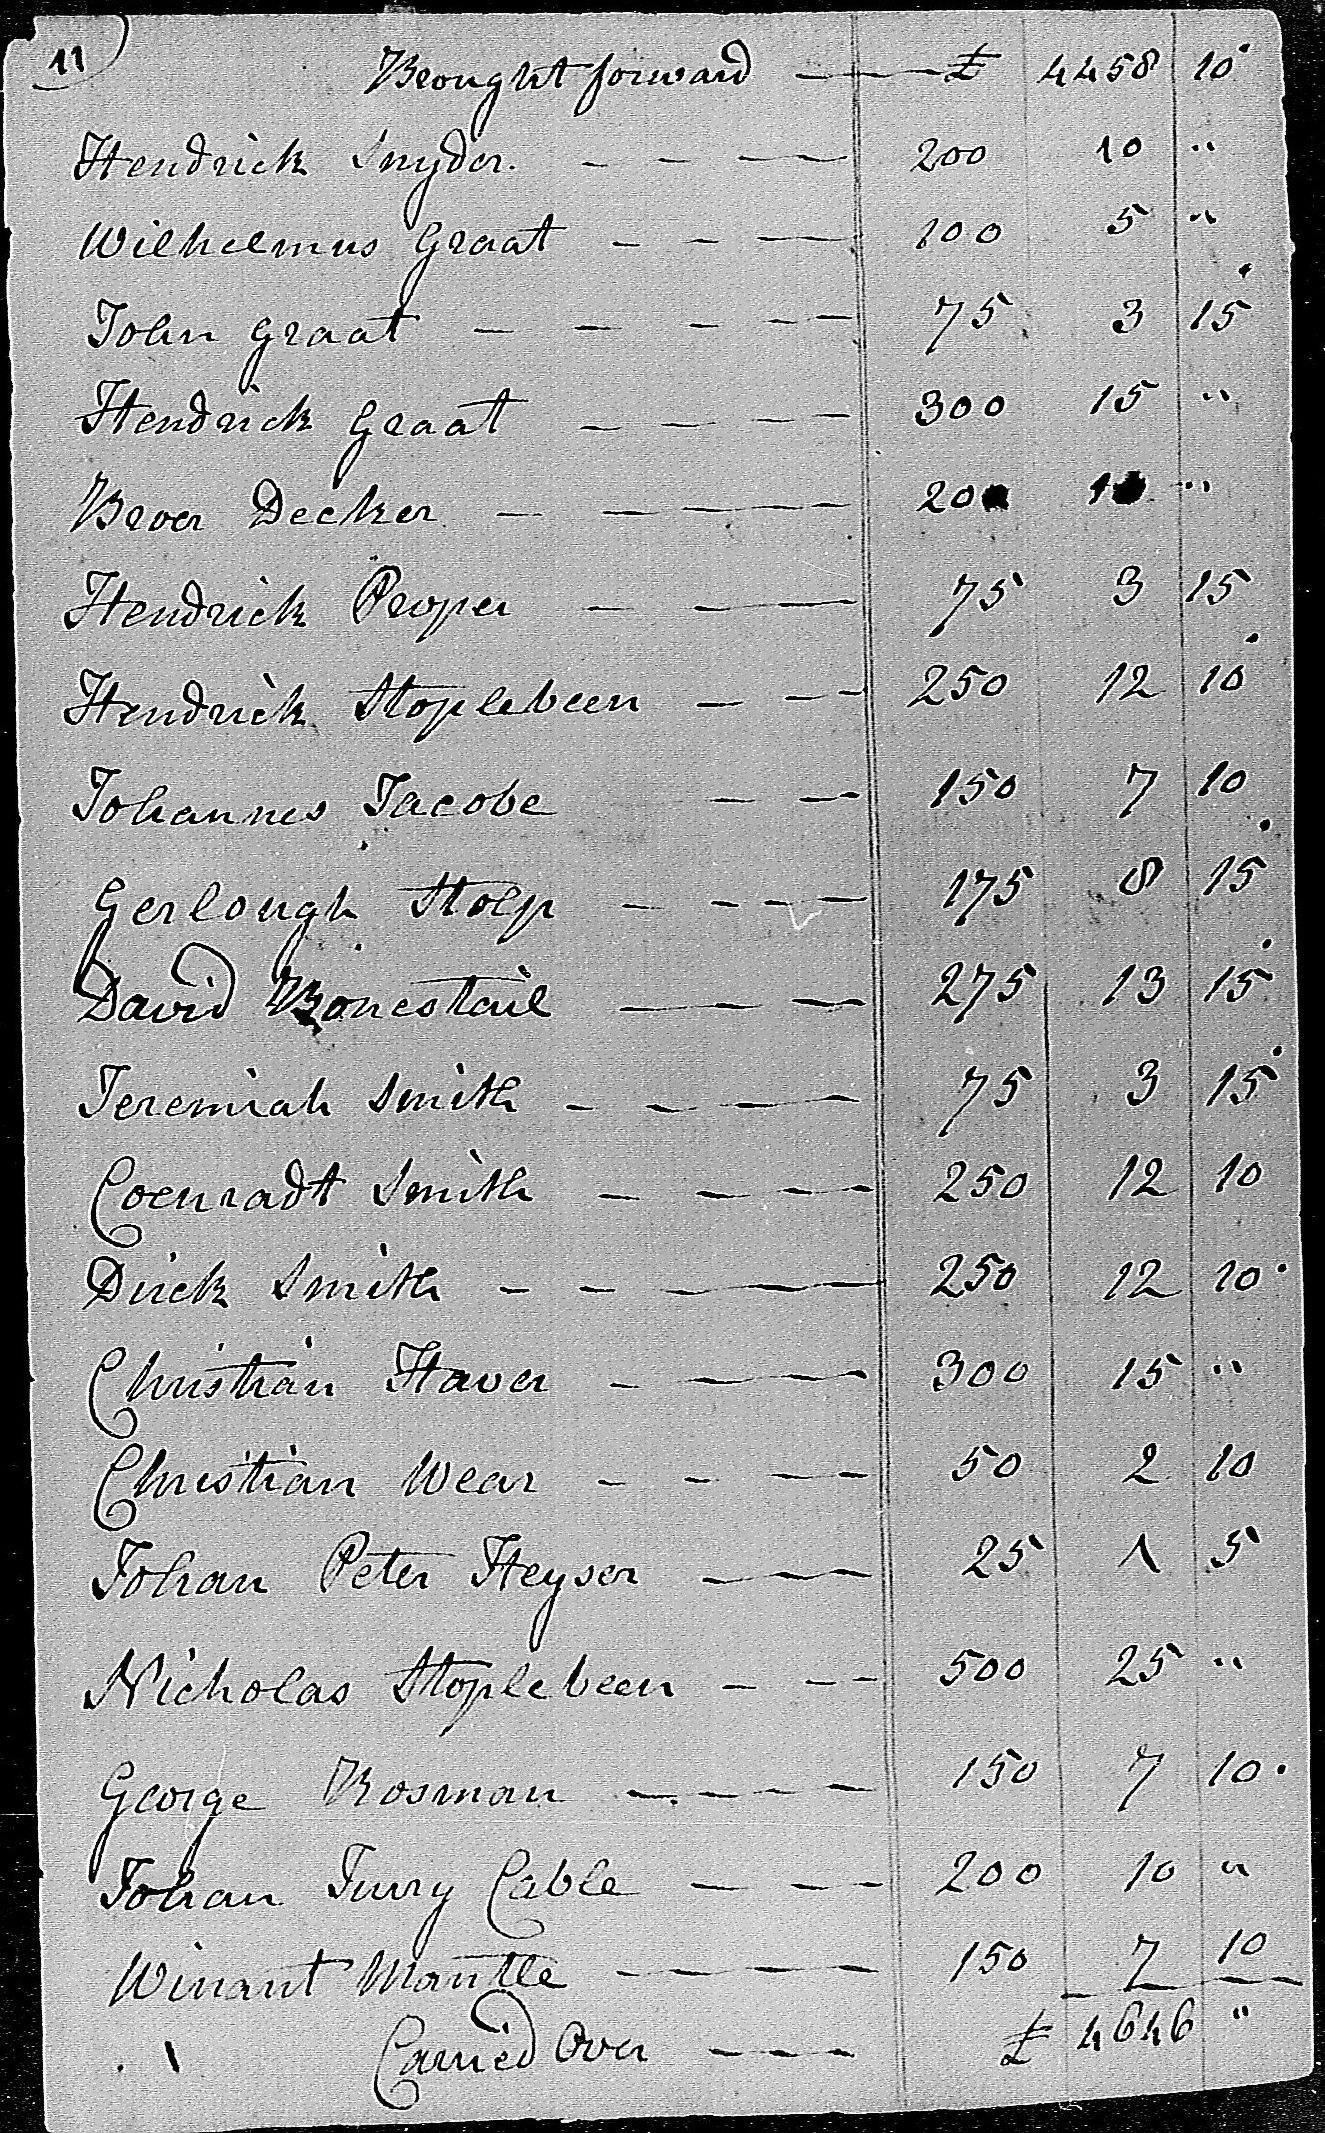 11
Brought forward £ 4458 10
Hendrick Snyder. 200 10 "
Wilhelmus Graat 100 5 "
John Graat 75 3 15
Hendrick Graat 300 15 "
Broer Decker 200 10 "
Hendrick Proper 75 3 15
Hendrick Stoplebeen 250 12 10
Johannes Jacobe 150 7 10
Gerlough Stolp 175 8 15
David Bonesteil 275 13 15
Jeremiah Smith 75 3 15
Coenradt Smith 250 12 10
Dirck Smith 250 12 10
Christian Haver 300 15 "
Christian Wear 50 2 10
Johan Peter Heyser 25 1 5
Nicholas Stoplebeen 500 25 "
George Rosman 150 7 10
Johan Jurry Cable 200 10 "
Winant Mantle 150 7 10
Carried Over £ 4646 "